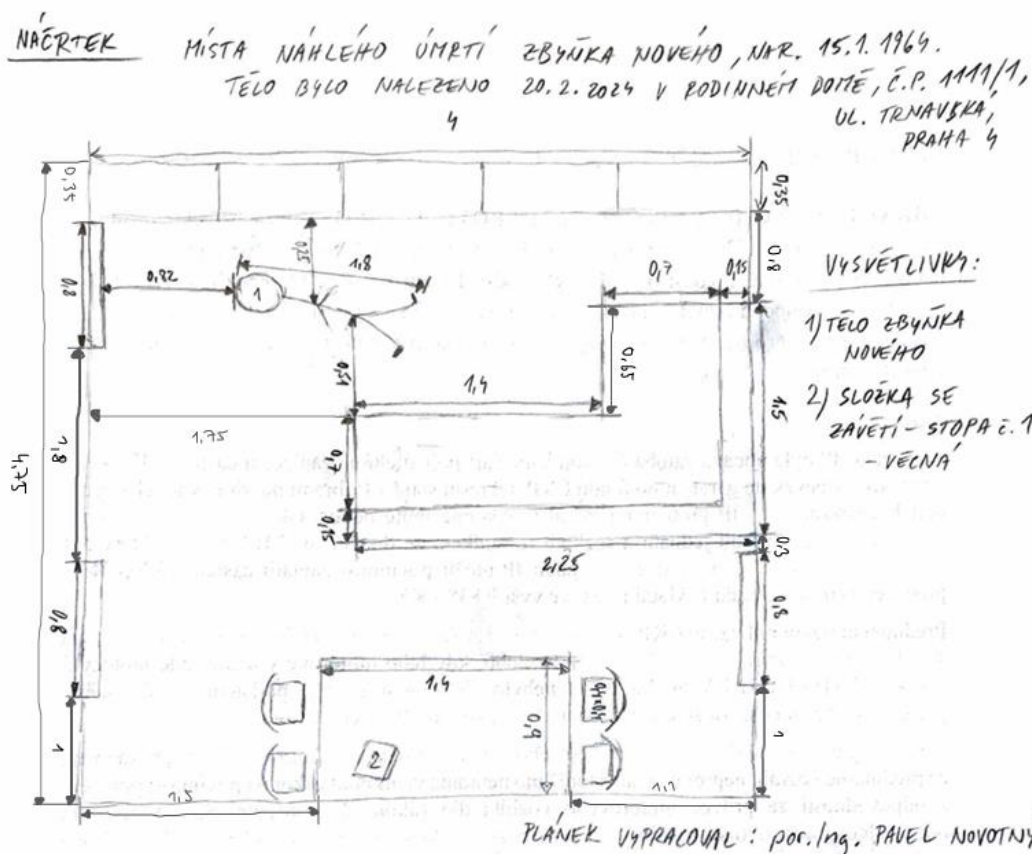 NÁČRTEK MÍSTA NÁHLÉHO ÚMRTÍ ZBYŇKA NOVÉHO, NAR. 15.1.1964.
TĚLO BYLO NALEZENO 20.2.2024 V RODINNÉM DOMĚ, Č.P. 1111/1,
UL. TRNAVSKÁ,
PRAHA 4
4
0,35
0,35
0,8
0,82
1
1,8
0,25
0,7
0,15
0,8
VYSVĚTLIVKY:
1) TĚLO ZBYŇKA
NOVÉHO
2) SLOŽKA SE
ZÁVĚTÍ - STOPA Č. 1
- VĚCNÁ
0,51
1,4
0,65
1,5
1.75
4,75
1,8
0,7
0,15
2,25
0,3
0,8
0,8
1,4
0,9
0,4x0,4
2
1
1
1,5
1,1
PLÁNEK VYPRACOVAL: por. Ing. PAVEL NOVOTNÝ